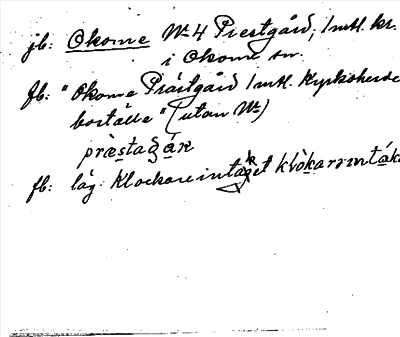 jb: Okome No 4 Prestgård, 1 mtl. kr.
i Okome sn.
fb: "Okome Prästgård 1 mtl. Kyrkoherde
boställe" (utan No)
præstagák
fb: läg. Klockareintaket klòkarıntáke